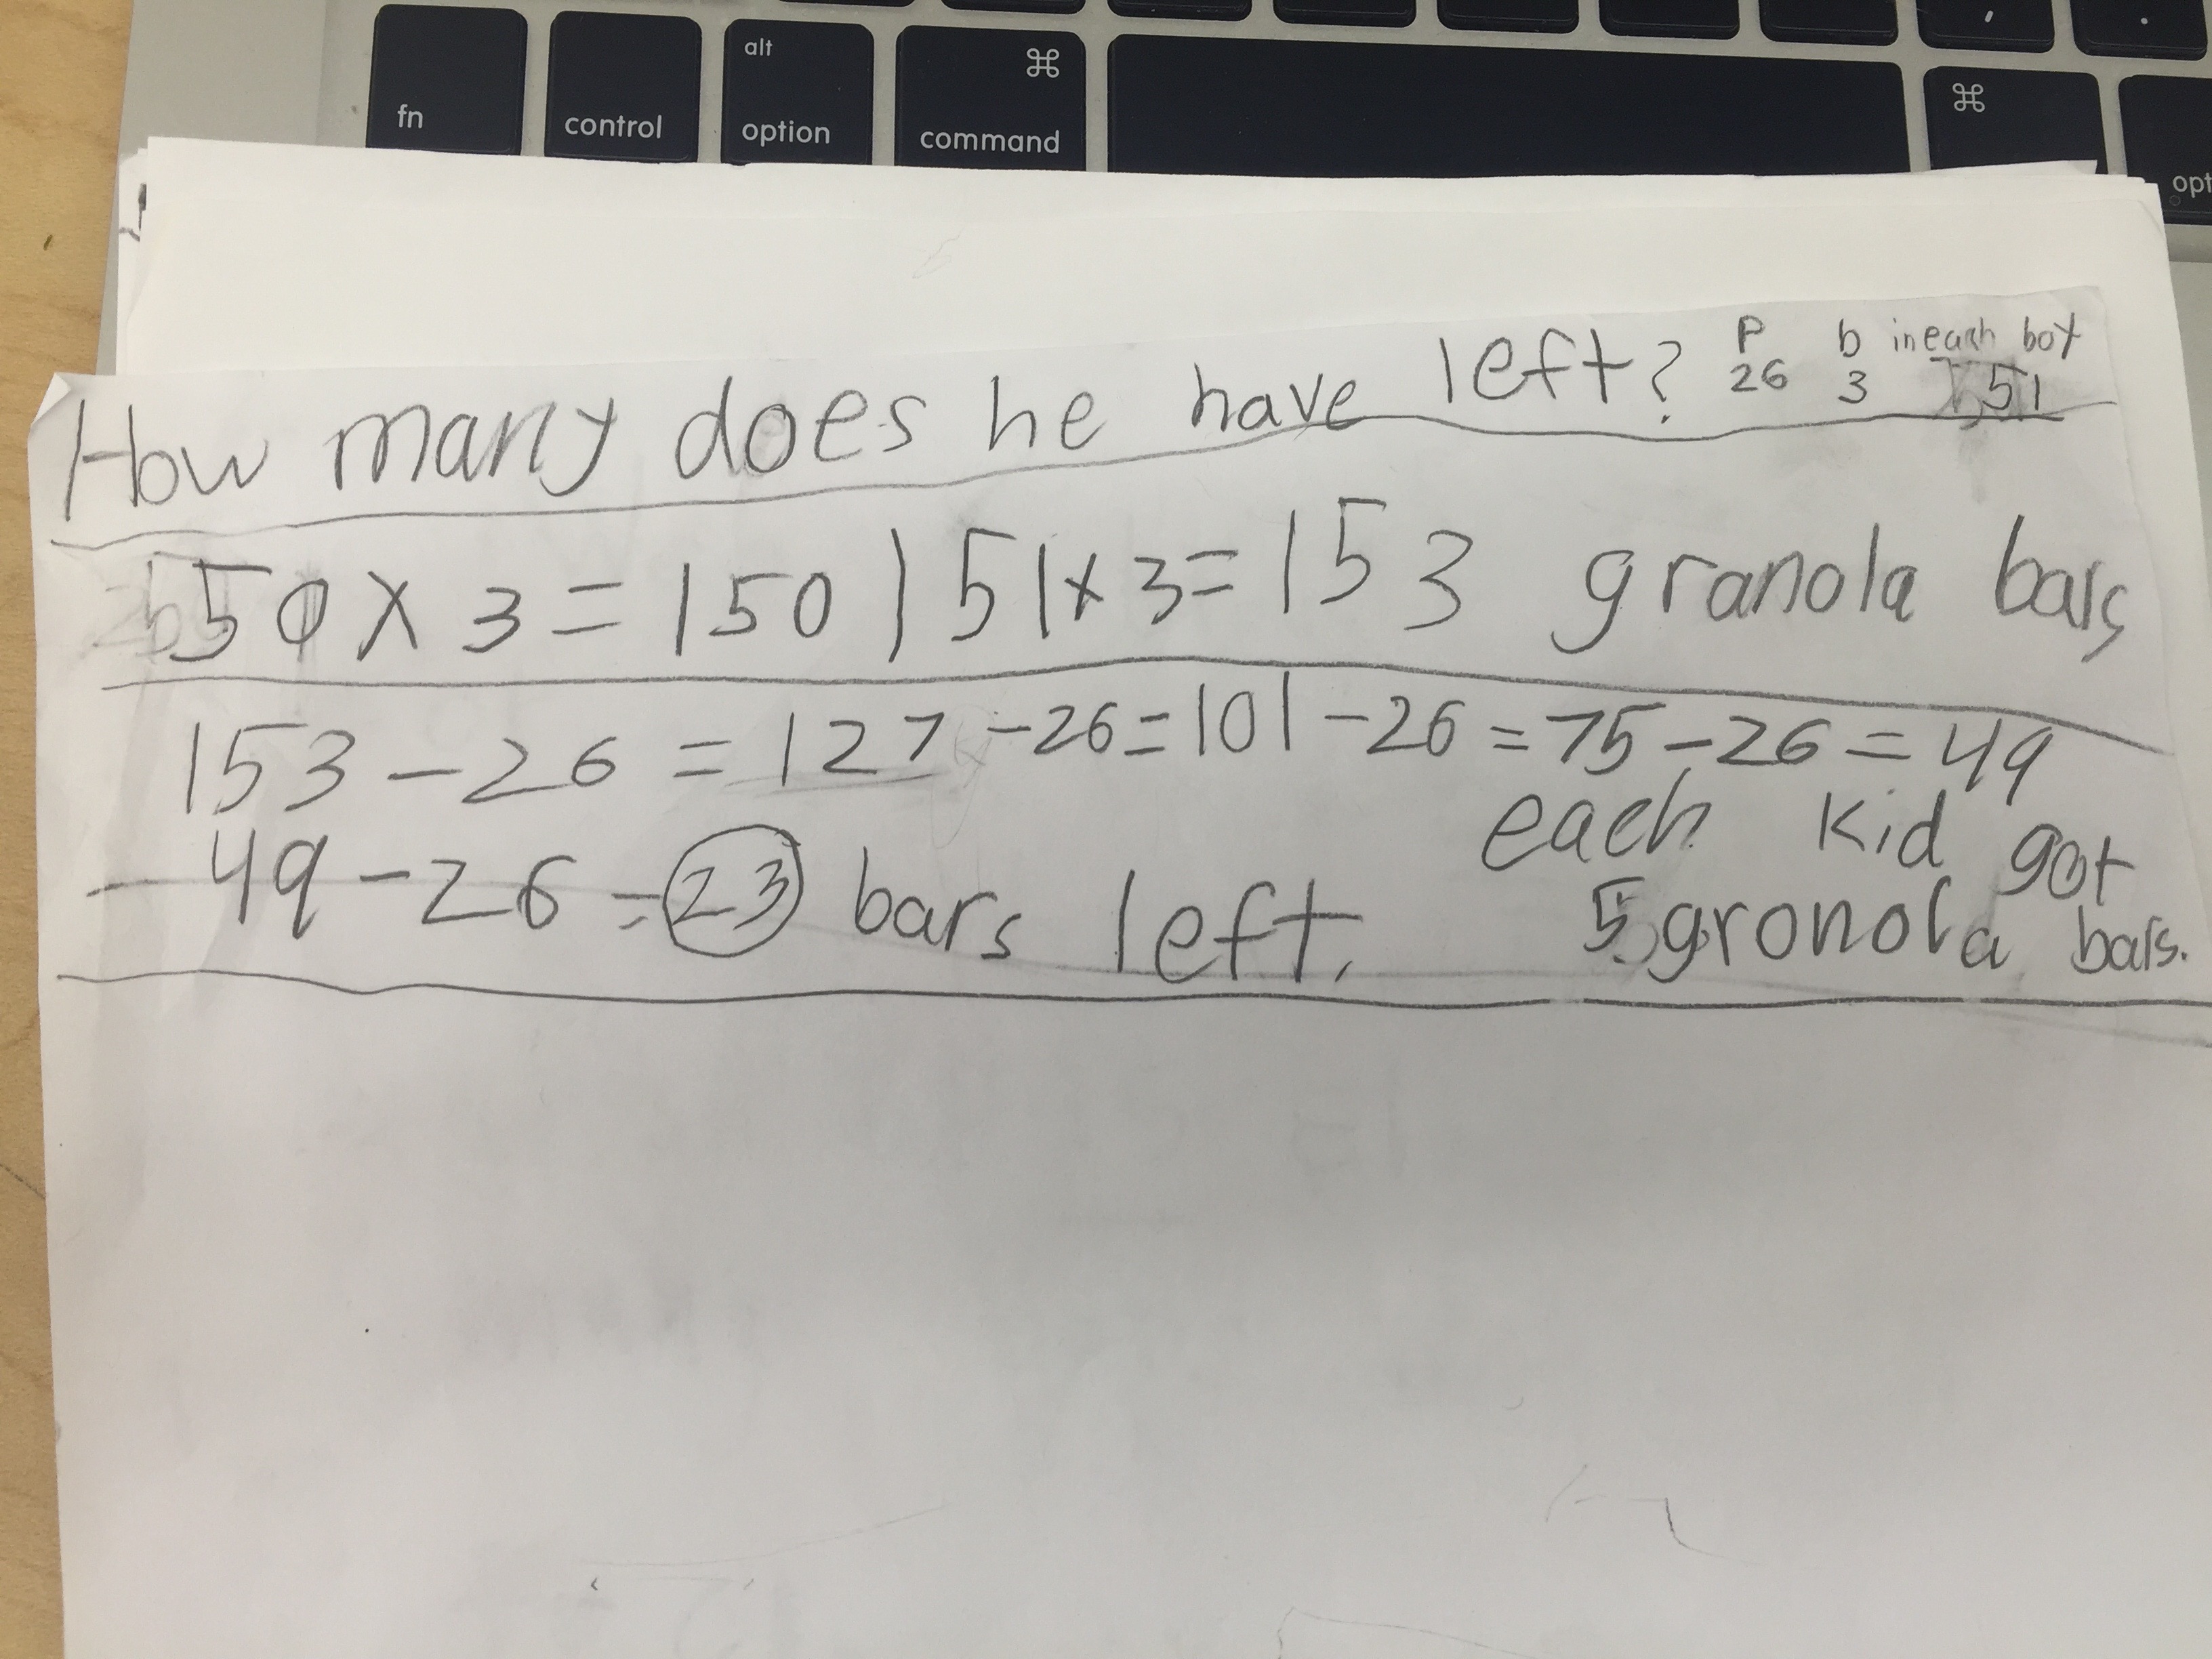 alt
fn control option command
opt
How many does he have left? P b in each box
26 3 51
50 x 3 = 150 | 51 x 3 = 153 granola bars
153 - 26 = 127 - 26 = 101 - 26 = 75 - 26 = 49
- 49 - 26 = 23 bars left.
each kid got
5 gronola bars.